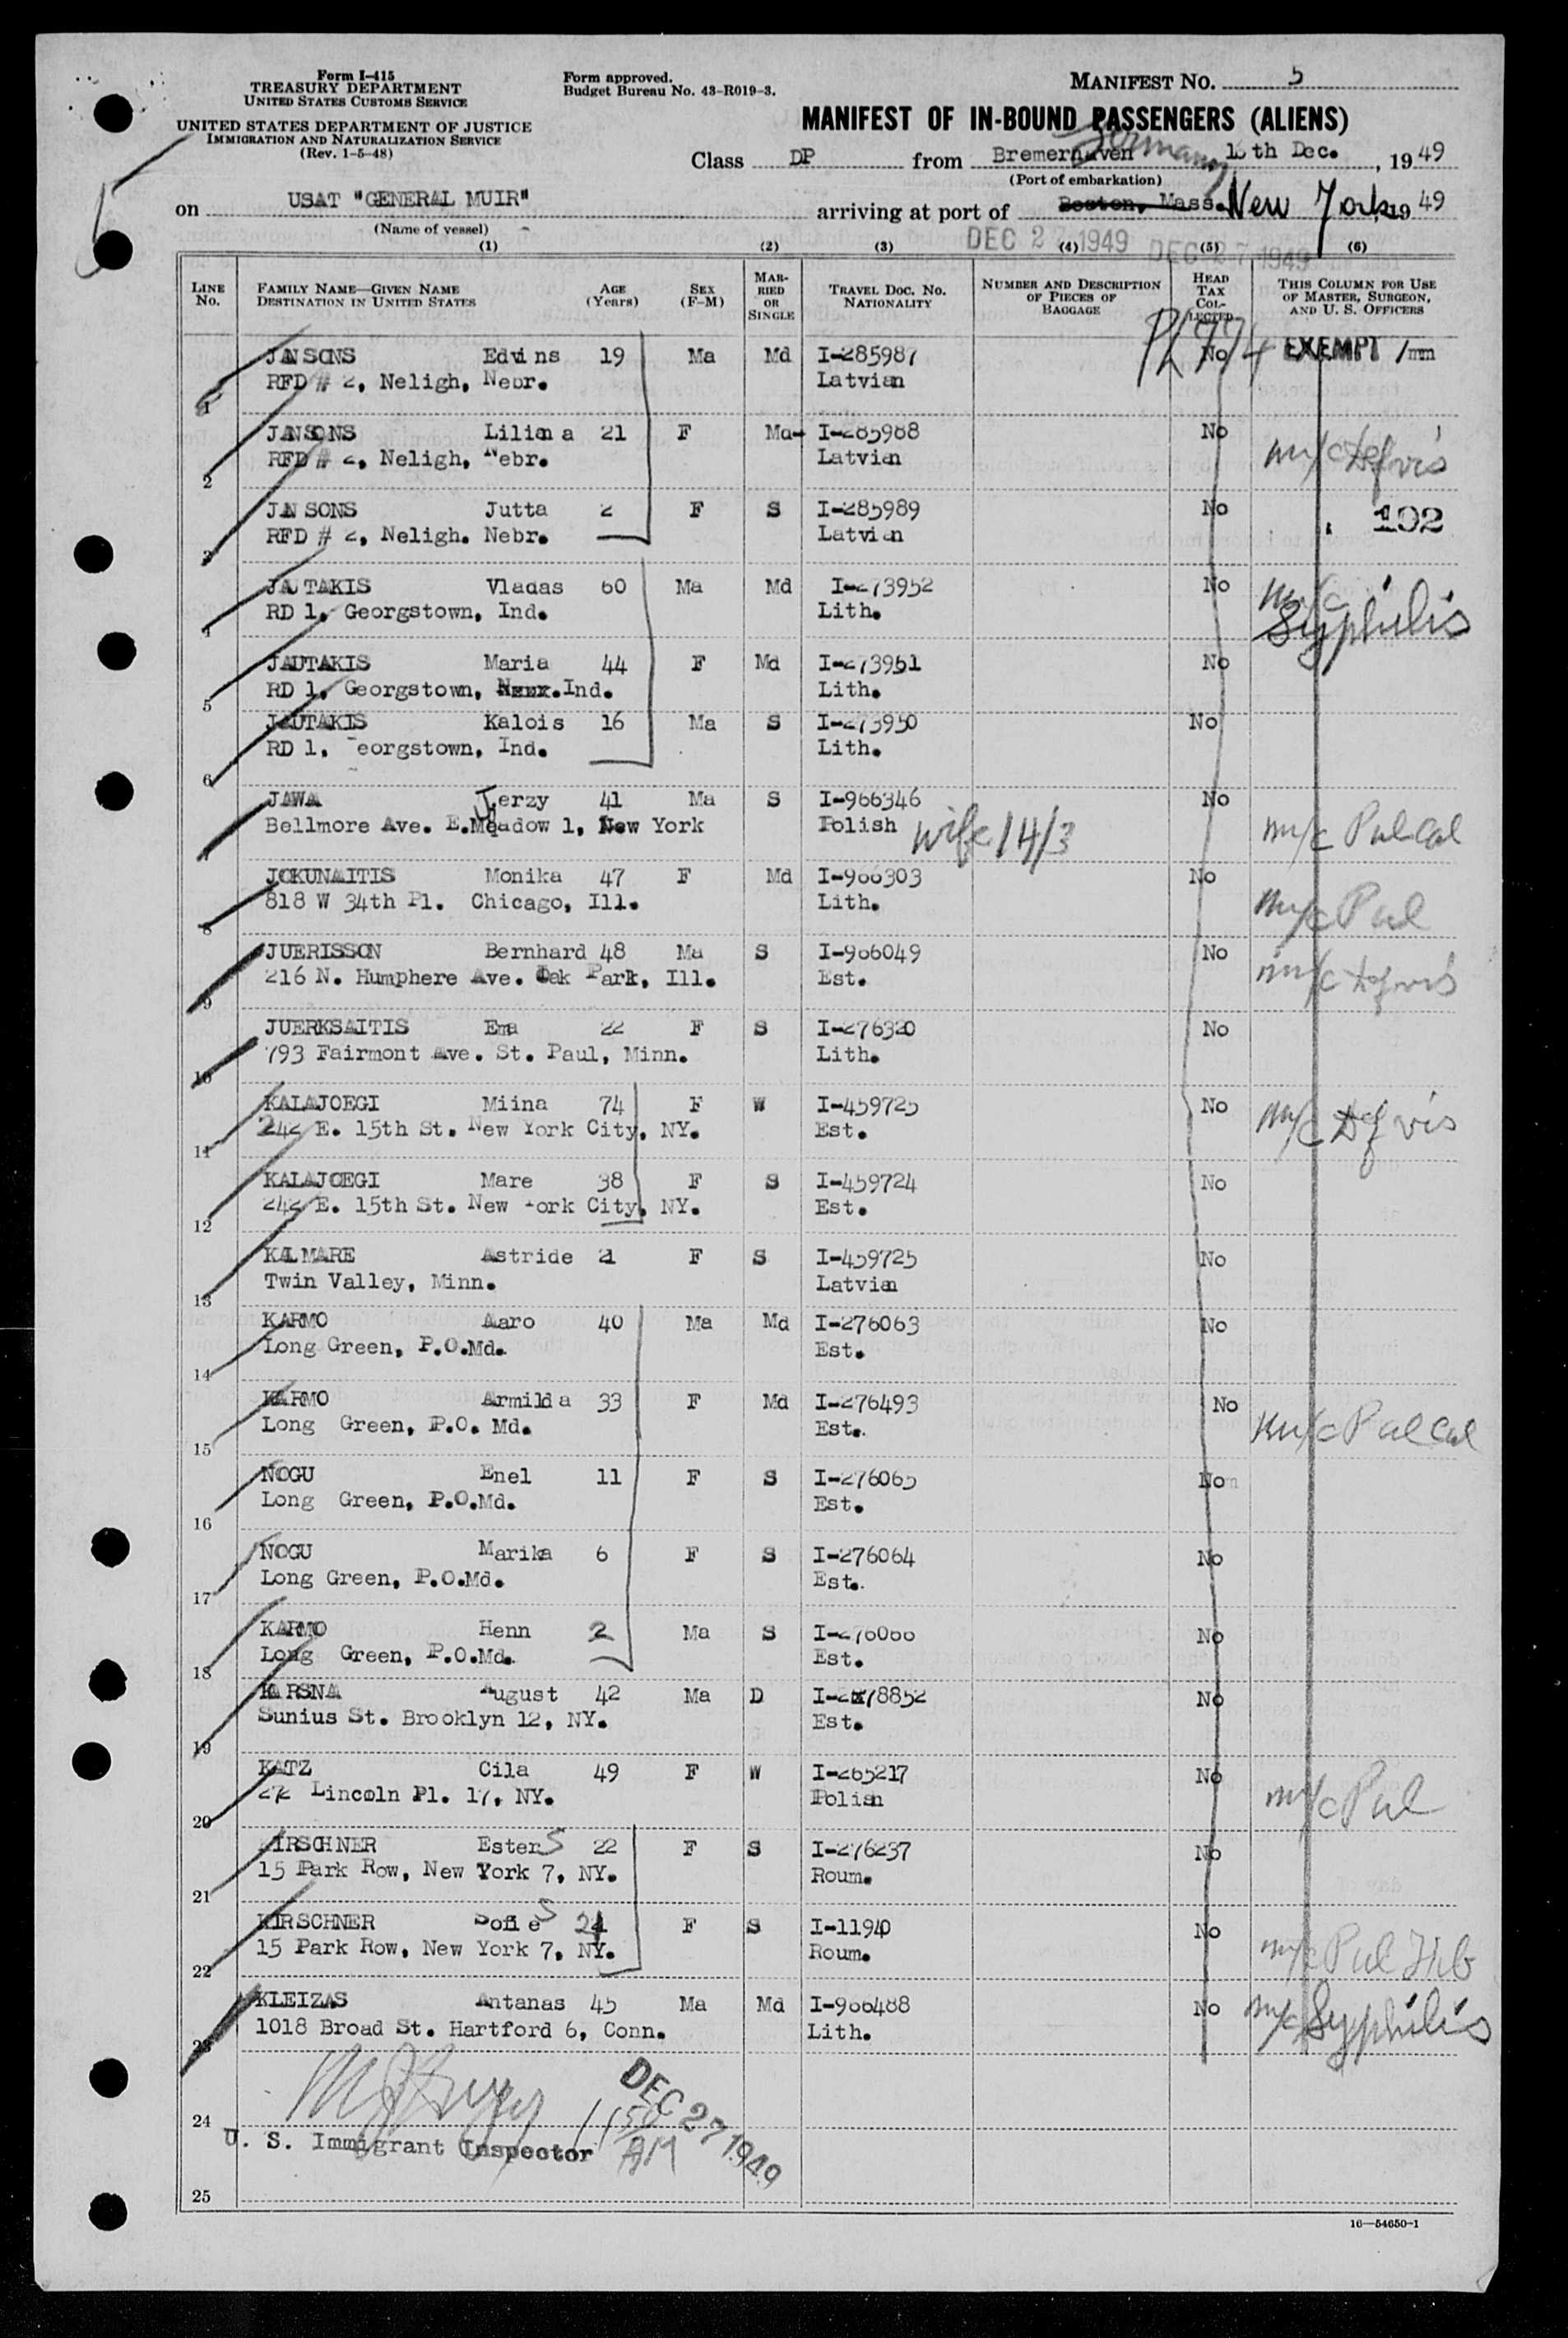 Form I-415
TREASURY DEPARTMENT
UNITED STATES CUSTOMS SERVICE
UNITED STATES DEPARTMENT OF JUSTICE
IMMIGRATION AND NATURALIZATION SERVICE
(Rev. 1-5-48)
Form approved.
Budget Bureau No. 43-R019-3.
MANIFEST NO. 5
MANIFEST OF IN-BOUND PASSENGERS (ALIENS)
Class DP from Bremerhaven Germany 16th Dec., 1949
(Port of embarkation)
on USAT "GENERAL MUIR" arriving at port of Boston, Mass. New York 1949
(Name of vessel)
DEC 27 1949 DEC 27 1949
(1) (2) (3) (4) (5) (6)
LINE No. FAMILY NAME—GIVEN NAME DESTINATION IN UNITED STATES AGE (Years) SEX (F-M) MARRIED OR SINGLE TRAVEL DOC. NO. NATIONALITY NUMBER AND DESCRIPTION OF PIECES OF BAGGAGE HEAD TAX COLLECTED THIS COLUMN FOR USE OF MASTER, SURGEON, AND U. S. OFFICERS
PL 774
JANSONS Edvins 19 Ma Md I-285987 No EXEMPT
1 RFD # 2, Neligh, Nebr. Latvian
JANSONS Liliana 21 F Ma- I-285988 No m/c Def vis
2 RFD # 2, Neligh, Nebr. Latvian
JANSONS Jutta 2 F S I-285989 No 102
3 RFD # 2, Neligh. Nebr. Latvian
JAUTAKIS Vladas 60 Ma Md I-273952 No m/c Syphilis
4 RD 1, Georgstown, Ind. Lith.
JAUTAKIS Maria 44 F Md I-273951 No
5 RD 1, Georgstown, Ind. Lith.
JAUTAKIS Kalois 16 Ma S I-273950 No
6 RD 1, eorgstown, Ind. Lith.
JAWA Jerzy 41 Ma S I-966346 No m/c Pul Cal
7 Bellmore Ave. E.Meadow 1, New York Polish wife 14/3
JOKUNAITIS Monika 47 F Md I-966303 No m/c Pul
8 818 W 34th Pl. Chicago, Ill. Lith.
JUERISSON Bernhard 48 Ma S I-966049 No m/c Def vis
9 216 N. Humphere Ave. Oak Park, Ill. Est.
JUERKSAITIS Ema 22 F S I-276320 No
10 793 Fairmont Ave. St. Paul, Minn. Lith.
KALAJOEGI Miina 74 F W I-459725 No m/c Def vis
11 242 E. 15th St. New York City, NY. Est.
KALAJOEGI Mare 38 F S I-459724 No
12 242 E. 15th St. New York City, NY. Est.
KALMARE Astride 21 F S I-459725 No
13 Twin Valley, Minn. Latvian
KARMO Aaro 40 Ma Md I-276063 No
14 Long Green, P.O.Md. Est.
KARMO Armilda 33 F Md I-276493 No m/c Pul Cal
15 Long Green, P.O. Md. Est.
NOGU Enel 11 F S I-276065 No
16 Long Green, P.O.Md. Est.
NOGU Marika 6 F S I-276064 No
17 Long Green, P.O.Md. Est.
KARMO Henn 2 Ma S I-276066 No
18 Long Green, P.O.Md. Est.
KARSNA August 42 Ma D I-278852 No
19 Sunius St. Brooklyn 12, NY. Est.
KATZ Cila 49 F W I-265217 No m/c Pul
20 272 Lincoln Pl. 17, NY. Polish
KIRSCHNER Ester S 22 F S I-276237 No
21 15 Park Row, New York 7, NY. Roum.
KIRSCHNER Sofie S 24 F S I-11940 No m/c Pul Tub
22 15 Park Row, New York 7, NY. Roum.
KLEIZAS Antanas 45 Ma Md I-966488 No m/c Syphilis
23 1018 Broad St. Hartford 6, Conn. Lith.
24 1150 AM DEC 27 1949
U. S. Immigrant Inspector
25
16—54650-1